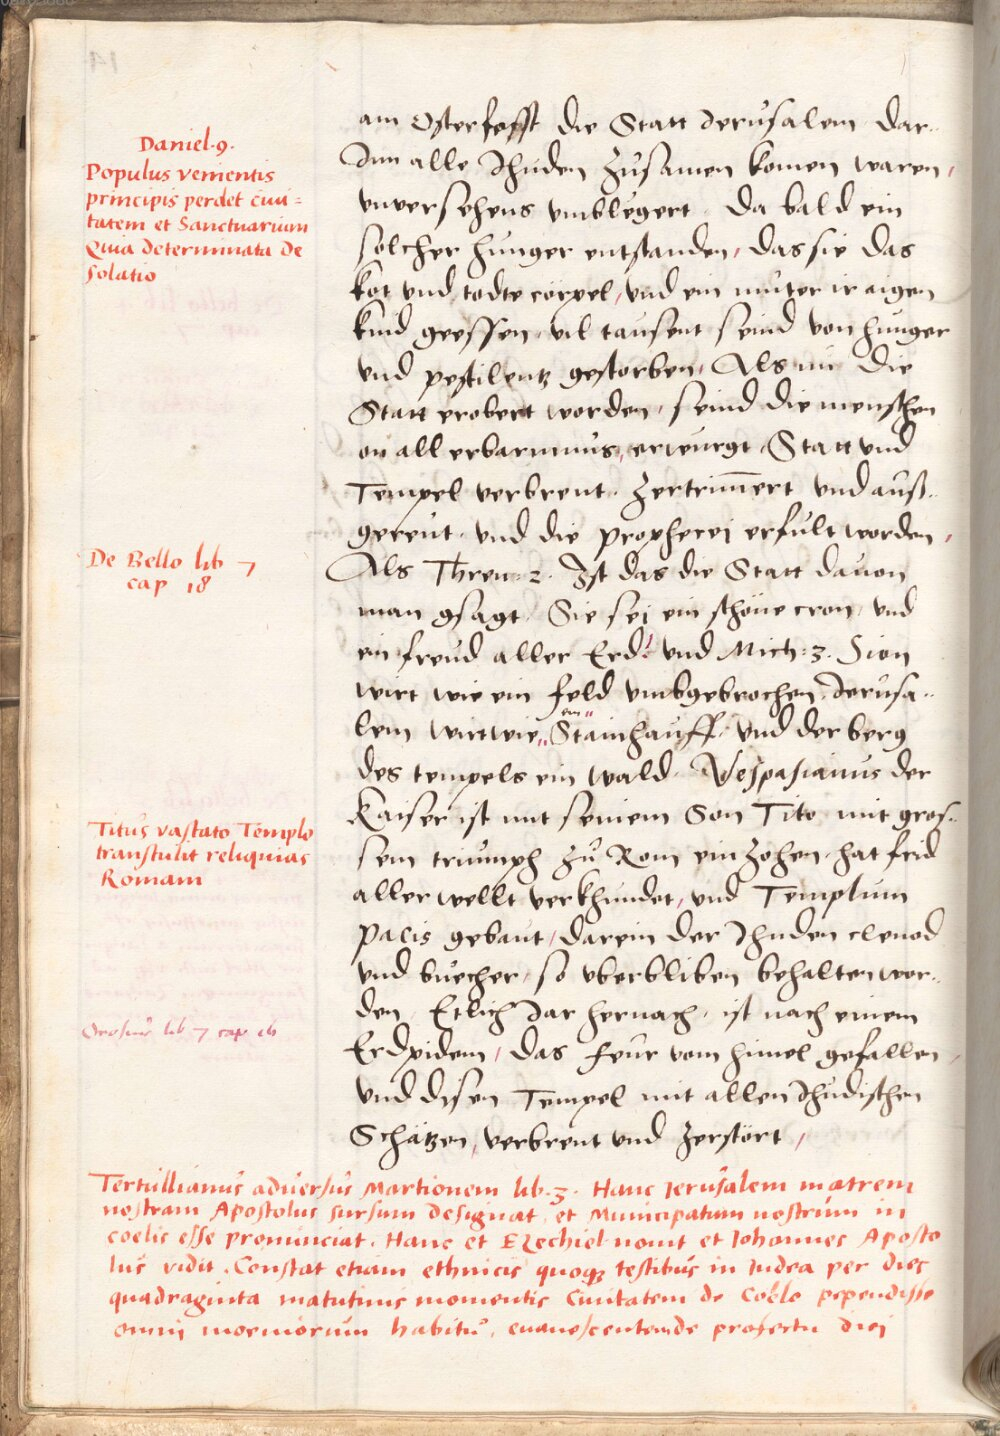 Daniel .9.
Populus venientis
principis perdet civi=
tatem et Sanctuarium
Quia determinata de
solatio
am Osterfesst die Statt Jerusalem dar..
Inn alle Jhuden zusamen komen waren,
unversehens umblegert. Da bald ein
solcher hunger entstanden, das sie das
kot und todte cörpel, und ein muter ir aigen
kind geessen, vil tausent seind von hunger
und pestilentz gestorben, Als nu die
Statt erobert worden, seind die menschen
on all erbarmnus, erwurgt, Statt und
Tempel verbrent. Zertrim̄ert und auß..
gereut, und die prophecei erfult worden,
De Bello lib 7
cap 18
Als Thren: 2. Ist das die Statt davon
man gsagt, Sie sei ein schöne cron, und
ein freud aller Erd? und Mich: 3. Sion
wirt wie ein feld umbgebrochen, Jerusa..
lem wirt wie ein Stainhauff, und der berg
des tempels ein wald. Vespasianus der
Kaiser ist mit seinem Son Tito mit gros..
Titus vastato Templo
transtulit reliquias
Romam
sem triumph zu Rom einzohen, hat frid
aller wellt verkhundet, und Templum
pacis gebaut, darein der Jhuden clenod
und buecher, so uberbliben behalten wor..
den, Etlich Jar hernach, ist nach einem
Orosius lib 7 cap 16
Erdpidem, das feur vom himel gefallen,
und disen Tempel mit allen Jhudischen
Schätzen, verbrent und zerstört,
Tertullianus adversus Martionem lib. 3. Hanc Jerusalem matrem
nostram Apostolus sursum designat, et Municipatum nostrum in
coelis esse pronunciat. Hanc et Ezechiel novit et Johannes Aposto
lus vidit. Constat etiam ethnicis quoque testibus in Judea per dies
quadraginta matutinis momentis Civitatem de Coelo pependisse
omni moeniorum habitu, evanescentem de profectu diei